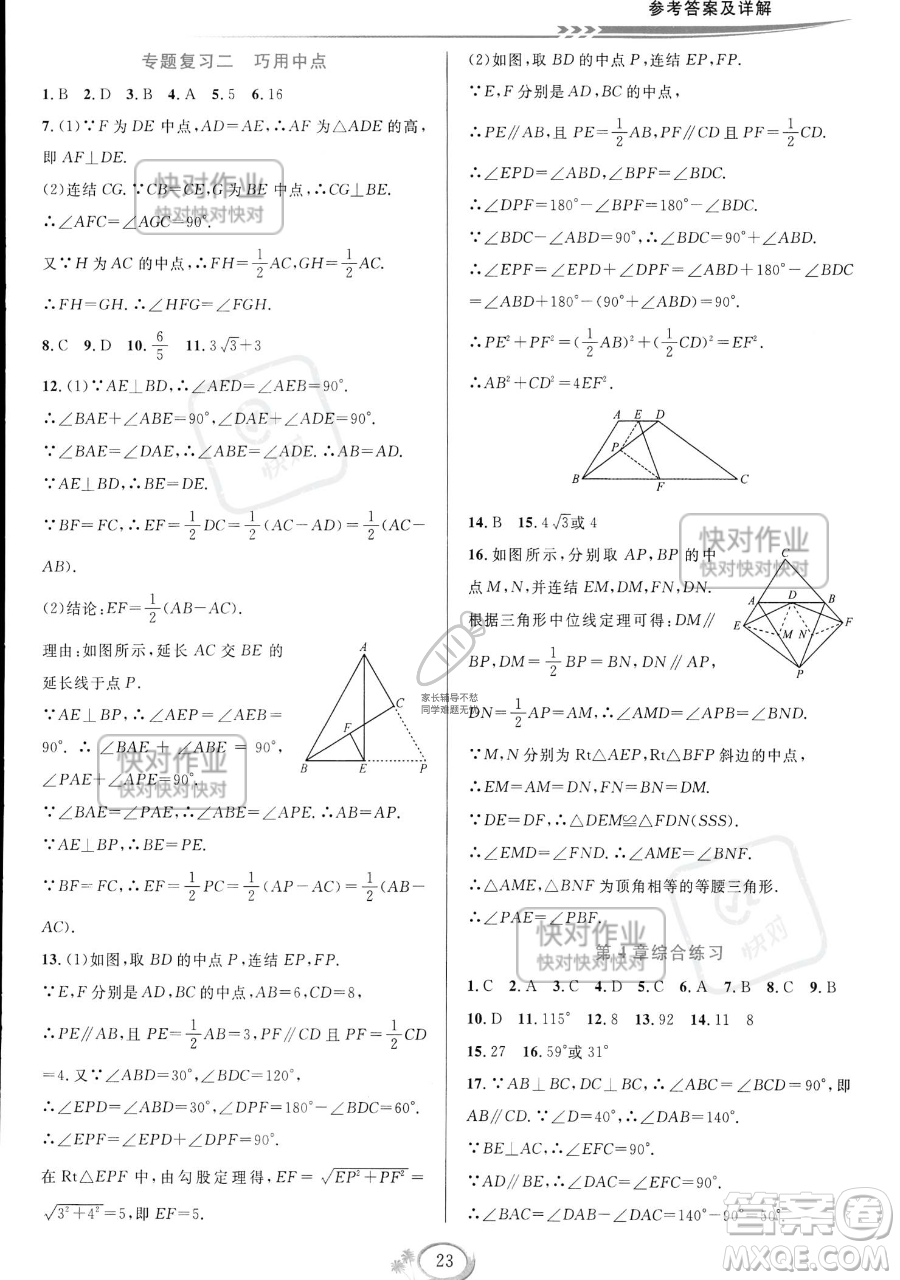 参考答案及详解
专题复习二 巧用中点
1.B 2.D 3.B 4.A 5.5 6.16
7.(1)∵F 为 DE 中点,AD=AE,∴AF 为△ADE 的高,
即 AF⊥DE.
(2)连结 CG.∵CB=CE,G 为 BE 中点,∴CG⊥BE.
∴∠AFC=∠AGC=90°.
又∵H 为 AC 的中点,∴FH=1/2AC,GH=1/2AC.
∴FH=GH.∴∠HFG=∠FGH.
8.C 9.D 10.6/5 11.3√3+3
12.(1)∵AE⊥BD,∴∠AED=∠AEB=90°.
∴∠BAE+∠ABE=90°,∠DAE+∠ADE=90°.
∵∠BAE=∠DAE,∴∠ABE=∠ADE.∴AB=AD.
∵AE⊥BD,∴BE=DE.
∵BF=FC,∴EF=1/2DC=1/2(AC-AD)=1/2(AC-
AB).
(2)结论:EF=1/2(AB-AC).
理由:如图所示,延长 AC 交 BE 的
延长线于点 P.
∵AE⊥BP,∴∠AEP=∠AEB=
90°.∴∠BAE+∠ABE=90°,
∠PAE+∠APE=90°.
∵∠BAE=∠PAE,∴∠ABE=∠APE.∴AB=AP.
∵AE⊥BP,∴BE=PE.
∵BF=FC,∴EF=1/2PC=1/2(AP-AC)=1/2(AB-
AC).
A
C
F
B E P
13.(1)如图,取 BD 的中点 P,连结 EP,FP.
∵E,F 分别是 AD,BC 的中点,AB=6,CD=8,
∴PE∥AB,且 PE=1/2AB=3,PF∥CD 且 PF=1/2CD
=4.又∵∠ABD=30°,∠BDC=120°,
∴∠EPD=∠ABD=30°,∠DPF=180°-∠BDC=60°.
∴∠EPF=∠EPD+∠DPF=90°.
在 Rt△EPF 中,由勾股定理得,EF=√(EP²+PF²)=
√(3²+4²)=5,即 EF=5.
(2)如图,取 BD 的中点 P,连结 EP,FP.
∵E,F 分别是 AD,BC 的中点,
∴PE∥AB,且 PE=1/2AB,PF∥CD 且 PF=1/2CD.
∴∠EPD=∠ABD,∠BPF=∠BDC.
∴∠DPF=180°-∠BPF=180°-∠BDC.
∵∠BDC-∠ABD=90°,∴∠BDC=90°+∠ABD.
∴∠EPF=∠EPD+∠DPF=∠ABD+180°-∠BDC
=∠ABD+180°-(90°+∠ABD)=90°.
∴PE²+PF²=(1/2AB)²+(1/2CD)²=EF².
∴AB²+CD²=4EF².
A E D
P
B F C
14.B 15.4√3或 4
16.如图所示,分别取 AP,BP 的中
点 M,N,并连结 EM,DM,FN,DN.
根据三角形中位线定理可得:DM∥
BP,DM=1/2BP=BN,DN∥AP,
DN=1/2AP=AM,∴∠AMD=∠APB=∠BND.
∵M,N 分别为 Rt△AEP,Rt△BFP 斜边的中点,
∴EM=AM=DN,FN=BN=DM.
∵DE=DF,∴△DEM≌△FDN(SSS).
∴∠EMD=∠FND.∴∠AME=∠BNF.
∴△AME,△BNF 为顶角相等的等腰三角形.
∴∠PAE=∠PBF.
C
A D B
E F
M N
P
第4章综合练习
1.C 2.A 3.B 4.C 5.B 6.A 7.C 8.B 9.B
10.D 11.115° 12.8 13.92 14.11 8
15.27 16.59°或 31°
17.∵AB⊥BC,DC⊥BC,∴∠ABC=∠BCD=90°,即
AB∥CD.∵∠D=40°,∴∠DAB=140°.
∵BE⊥AC,∴∠EFC=90°.
∵∠DAC=∠EFC,∴∠DAC=90°.
∴∠BAC=∠DAB-∠DAC=140°-90°=50°.
23
快对作业
快对快对快对
快对作业
快对快对快对
快对作业
快对快对快对
快对作业
快对快对快对
快对
快对
家长辅导不愁
同学难题无忧
答案圈
MXQE.COM